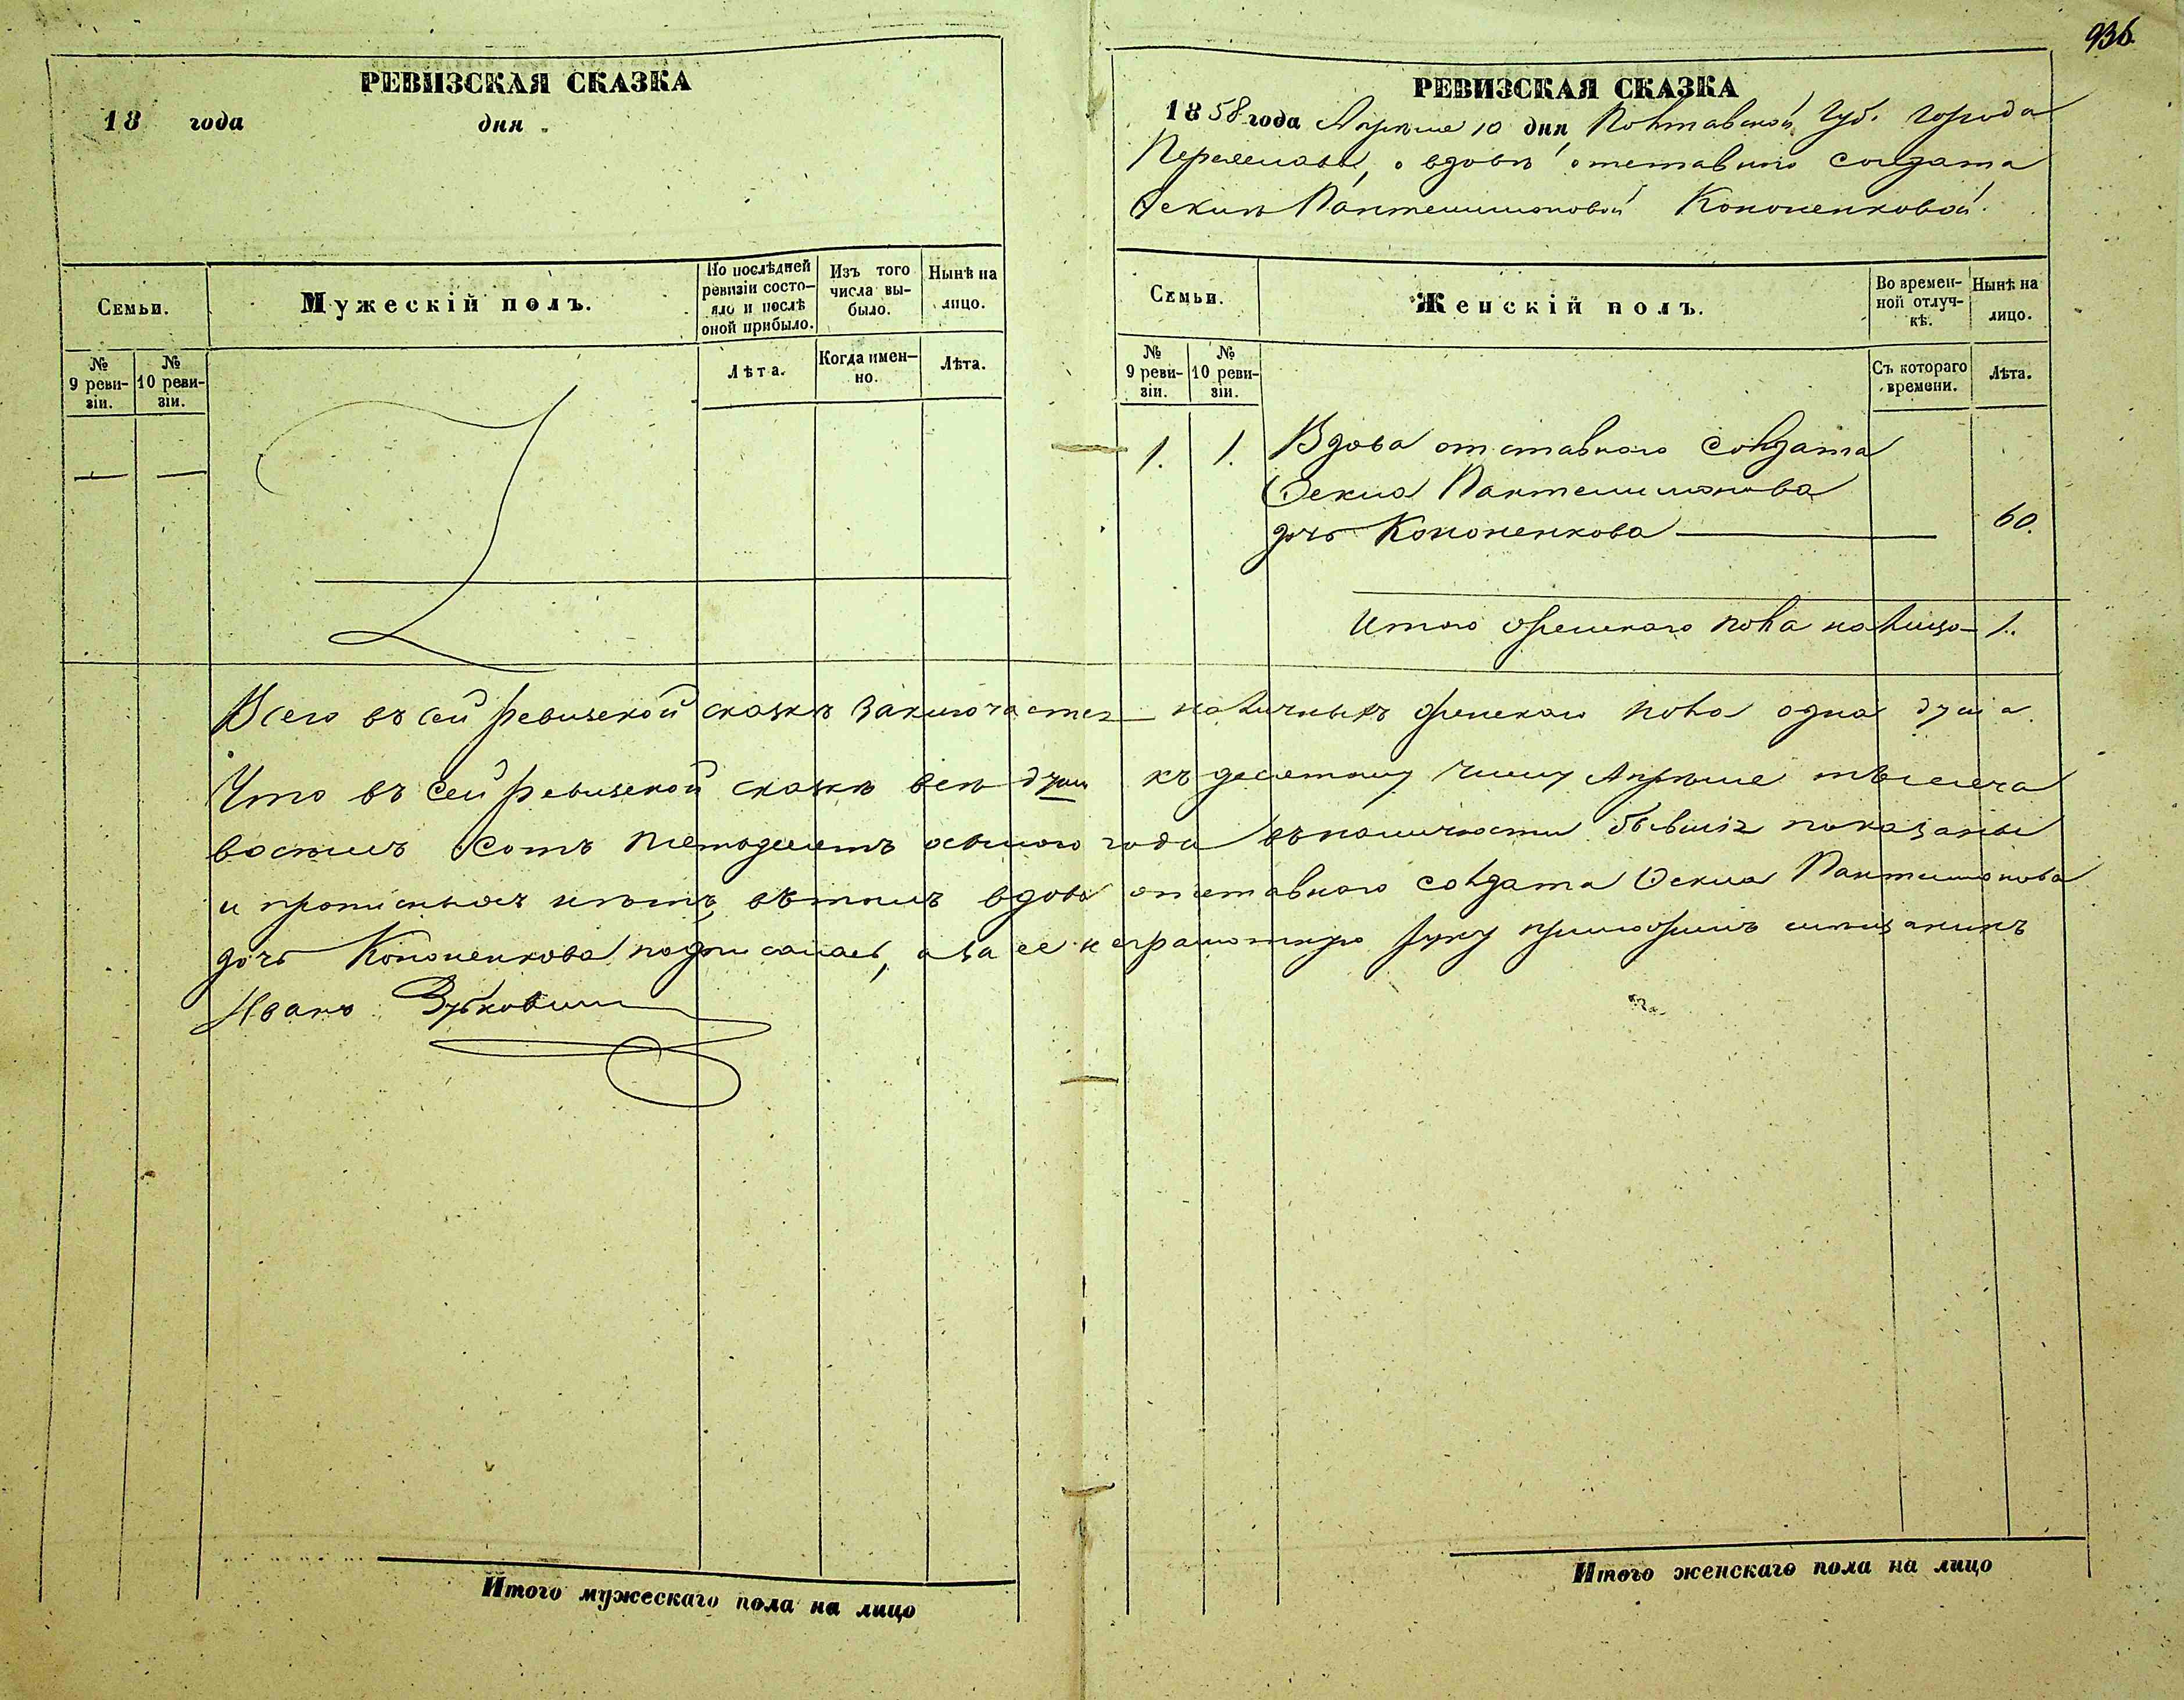 936.
РЕВИЗСКАЯ СКАЗКА
18 года дня
Семьи.
Мужескій полъ.
По послѣдней ревизіи состо-
яло и послѣ оной прибыло.
Изъ того числа вы-
было.
Нынѣ на лицо.
№ 9 реви-
зіи.
№ 10 реви-
зіи.
Лѣта.
Когда имен-
но.
Лѣта.
РЕВИЗСКАЯ СКАЗКА
1858 года Апрѣля 10 дня, Полтавской Губ. города
Переяслава, о вдовѣ отставнаго солдата
Пантелимоновой Кононенковой.
Семьи.
Женскій полъ.
Во времен-
ной отлуч-
кѣ.
Нынѣ на лицо.
№ 9 реви-
зіи.
№ 10 реви-
зіи.
Съ котораго времени.
Лѣта.
1. 1. Вдова отставнаго солдата
Пантелимонова
дочь Кононенкова 60.
Итого женскаго пола на лицо 1.
Всего въ сей ревизской сказкѣ заключается наличныхъ женскаго пола одна душа.
Что въ сей ревизской сказкѣ всѣ души къ десятому числу Апрѣля тысяча
восемь сотъ пятьдесятъ осьмого года въ наличности бывшія показаны
и прописныхъ нѣтъ, въ томъ вдова отставнаго солдата Пантелимонова
дочь Кононенкова подписалась, а за ее неграмотную руку приложилъ
Иванъ
Итого мужескаго пола на лицо
Итого женскаго пола на лицо